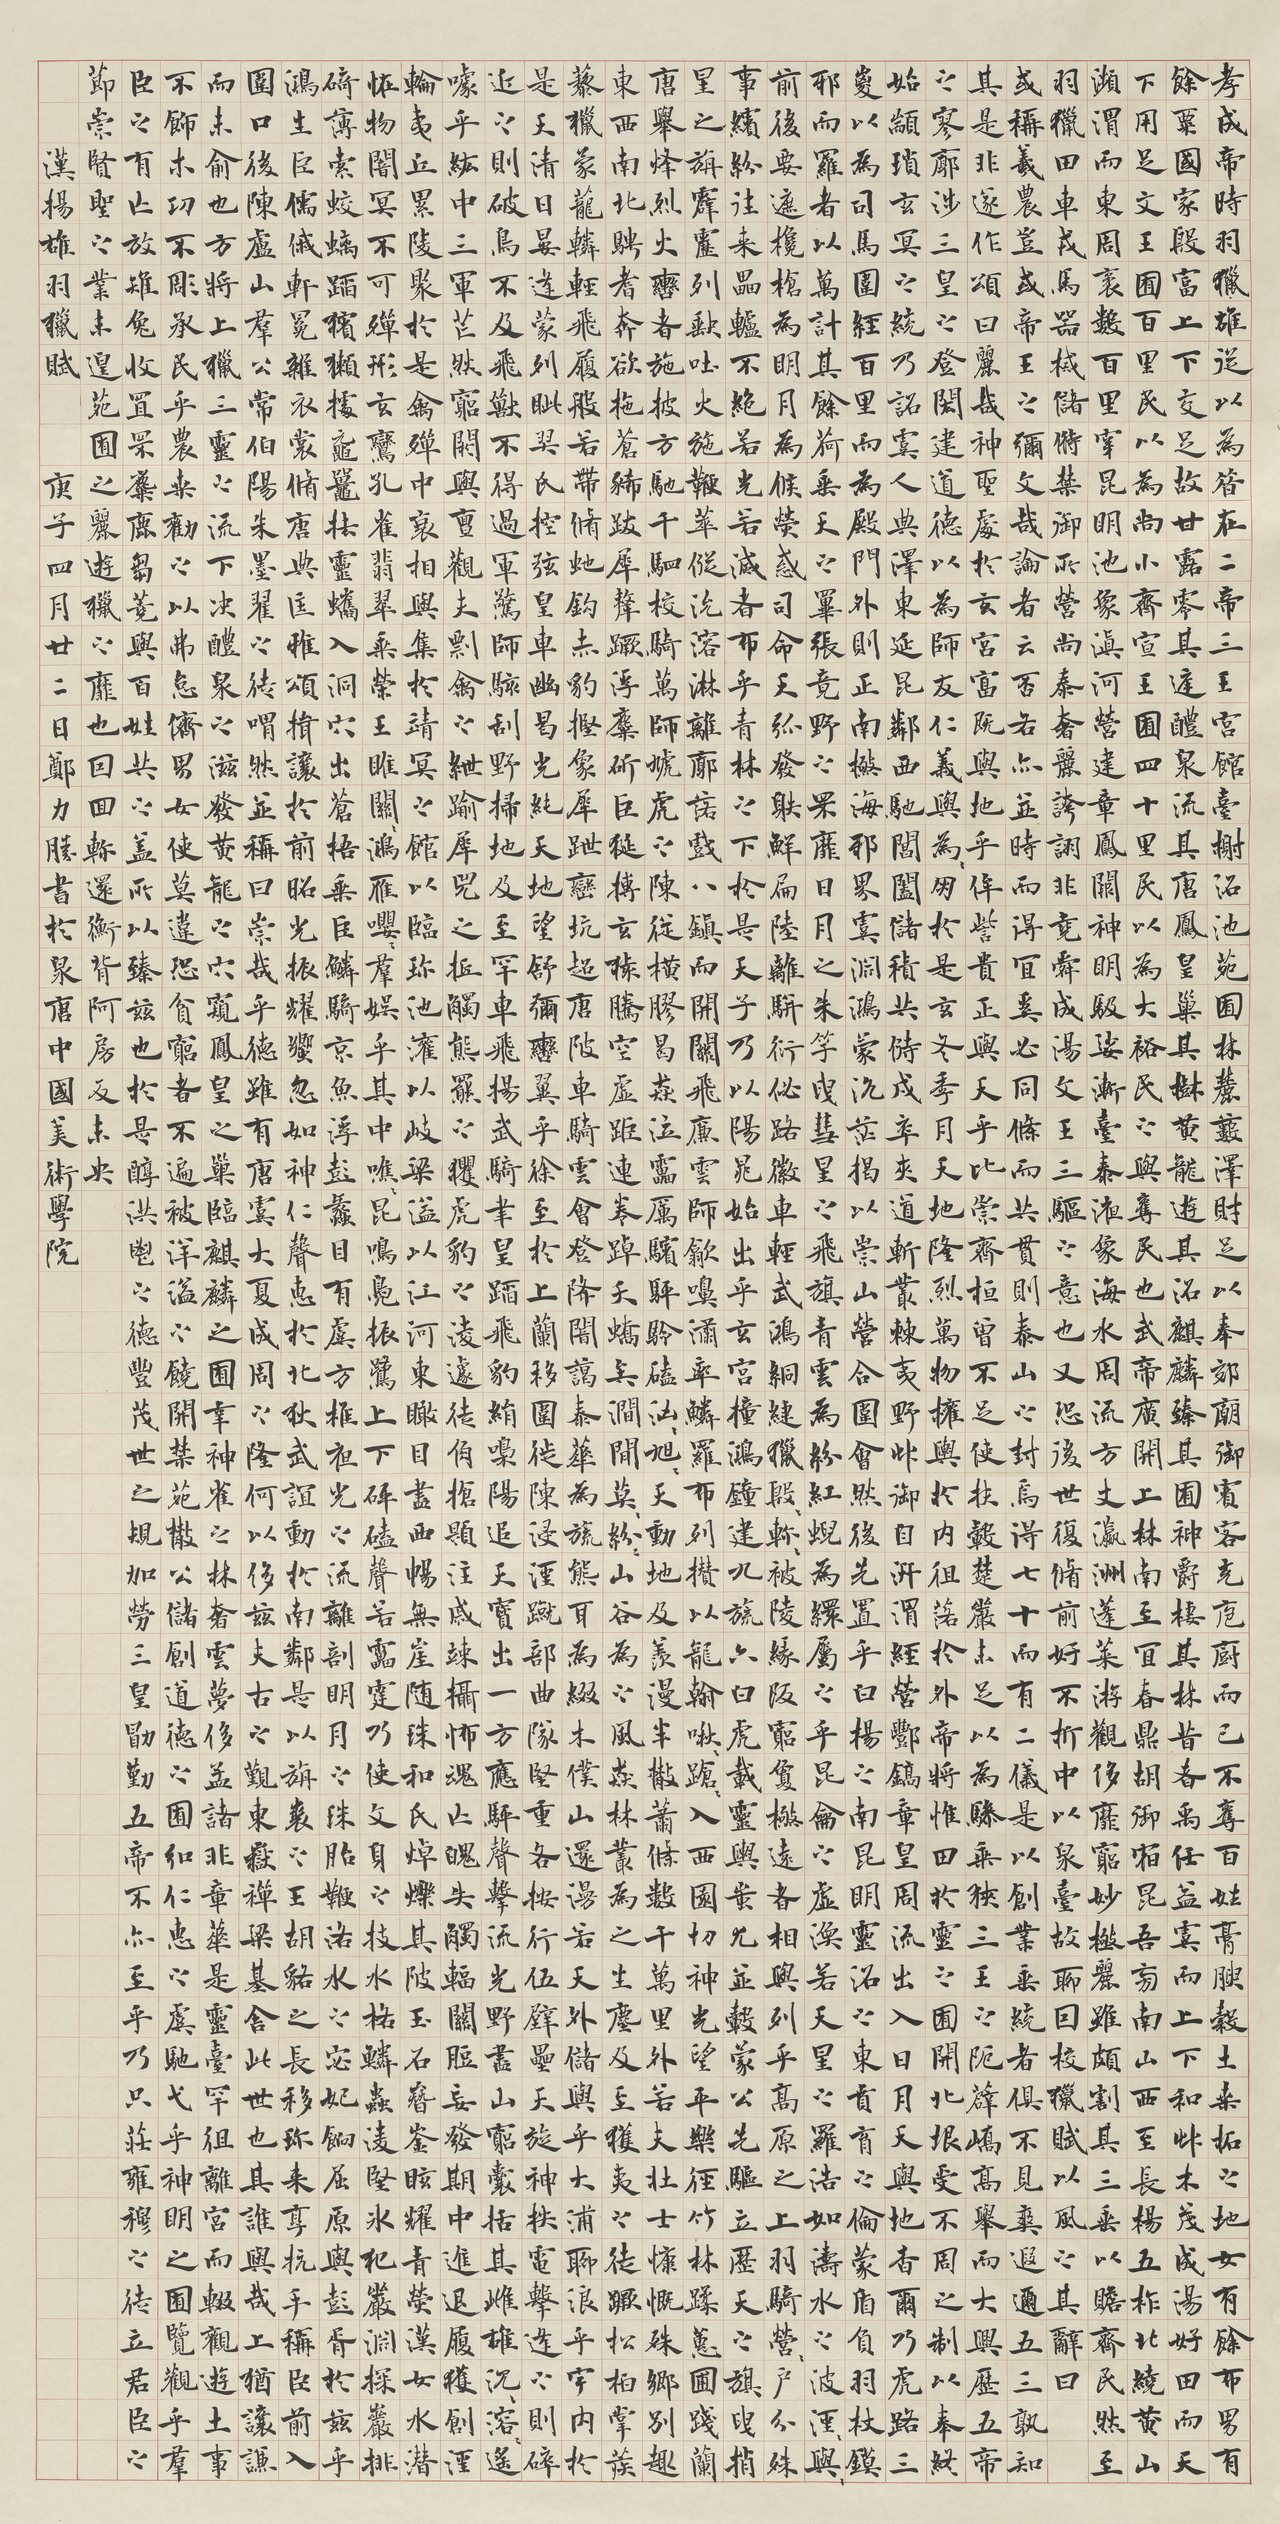 孝成帝時羽獵雄從以為昔在二帝三王宮館臺榭沼池苑囿林麓藪澤財足以奉郊廟御賓客充庖廚而已不奪百姓膏腴穀土桑柘之地女有餘布男有
餘粟國家殷富上下交足故甘露零其庭醴泉流其唐鳳皇巢其樹黃龍遊其沼麒麟臻其囿神爵棲其林昔者禹任益虞而上下和艸木茂成湯好田而天
下用足文王囿百里民以為尚小齊宣王囿四十里民以為大裕民之與奪民也武帝廣開上林南至宜春鼎胡御宿昆吾旁南山西至長楊五柞北繞黃山
瀕渭而東周袤數百里穿昆明池象滇河營建章鳳闕神明馺娑漸臺泰液象海水周流方丈瀛洲蓬萊游觀侈靡窮妙極麗雖頗割其三垂以贍齊民然至
羽獵田車戎馬器械儲偫禁御所營尚泰奢麗誇詡非堯舜成湯文王三驅之意也又恐後世復脩前好不折中以泉臺故聊因校獵賦以風之其辭曰
或稱羲農豈或帝王之彌文哉論者云否各亦並時而得宜奚必同條而共貫則泰山之封烏得七十而有二儀是以創業垂統者俱不見爽遐邇五三孰知
其是非遂作頌曰麗哉神聖處於玄宮富既與地乎侔訾貴正與天乎比崇齊桓曾不足使扶轂楚嚴未足以為驂乘狹三王之阨薜嶠高舉而大興歷五帝
之寥廓涉三皇之登閎建道德以為師友仁義與為、朋於是玄冬季月天地隆烈萬物權輿於內徂落於外帝將惟田於靈之囿開北垠受不周之制以奉終
始顓頊玄冥之統乃詔虞人典澤東延昆鄰西馳閶闔儲積共偫戍卒夾道斬叢棘夷野艸御自汧渭經營酆鎬章皇周流出入日月天與地杳爾乃虎路三
嵏以為司馬圍經百里而為殿門外則正南極海邪界虞淵鴻蒙沆茫揭以崇山營合圍會然後先置乎白楊之南昆明靈沼之東賁育之倫蒙盾負羽杖鏌
邪而羅者以萬計其餘荷垂天之罼張竟野之罘靡日月之朱竿曳彗星之飛旗青雲為紛紅蜺為繯屬之乎昆侖之虛渙若天星之羅浩如濤水之波淫與、
前後要遮欃槍為明月為候熒惑司命天弧發射鮮扁陸離駢衍佖路徽車輕武鴻絧緁獵殷軫、被陵緣阪窮夐極遠者相與列乎高原之上羽騎營、戶分殊
事繽紛往來畾轤不絕若光若滅者布乎青林之下於是天子乃以陽晁始出乎玄宮撞鴻鐘建九旒六白虎載靈輿蚩尤並轂蒙公先驅立歷天之旗曳捎
星之旃霹靂列缺吐火施鞭萃傱沇溶淋離廓落戲八鎮而開關飛廉雲師歙嚊潚率鱗羅布列攢以龍翰啾、蹌、入西園切神光望平樂徑竹林蹂蕙圃踐蘭
唐舉烽烈火轡者施披方馳千駟校騎萬師虓虎之陳從橫膠曷猋泣靁厲驞駍駖磕汹、旭、天動地及羨漫半散蕭條數千萬里外若夫壯士慷慨殊鄉別趣
東西南北騁耆奔欲拖蒼豨跋犀犛蹶浮麋斮巨狿搏玄猿騰空虛距連卷踔夭蟜娭澗間莫、紛、山谷為之風猋林叢為之生塵及至獲夷之徒蹶松柏掌蒺
藜獵蒙蘢轔輕飛履般若帶脩虵鉤赤豹摼象犀跇巒坑超唐陂車騎雲會登降闇藹泰華為旒熊耳為綴木僕山還漫若天外儲與乎大浦聊浪乎宇內於
是天清日晏逢蒙列眥羿氏控弦皇車幽曷光純天地望舒彌轡翼乎徐至於上蘭移圍徙陳浸淫蹴部曲隊堅重各按行伍壁壘天旋神抶電擊逢之則碎
近之則破鳥不及飛獸不得過軍驚師駭刮野掃地及至罕車飛揚武騎聿皇蹈飛豹絹嘄陽追天寶出一方應駍聲擊流光野盡山窮囊括其雌雄沉、溶、遙
噱乎紘中三軍芒然窮閼與亶觀夫剽禽之紲踰犀兕之抵觸熊羆之玃虎豹之凌遽徒角搶題注蹙竦攝怖魂亡魄失觸輻關脰妄發期中進退履獲創淫
輪夷丘累陵聚於是禽殫中衰相與集於靖冥之館以臨珍池灌以岐梁溢以江河東瞰目盡西暢無崖隨珠和氏焯爍其陂玉石嶜崟眩耀青熒漢女水潛
怪物闇冥不可殫形玄鸞孔雀翡翠垂榮王雎關、鴻雁嚶、群娛乎其中噍、昆鳴鳧振鷺上下砰磕聲若靁霆乃使文身之技水格鱗蟲凌堅冰犯嚴淵探巖排
碕薄索蛟螭蹈獱獺據黿鼉抾靈蠵入洞穴出蒼梧乘巨鱗騎京魚浮彭蠡目有虞方椎夜光之流離剖明月之珠胎鞭洛水之宓妃餉屈原與彭胥於茲乎
鴻生臣儒俄軒冕雜衣裳脩唐典匡雅頌揖讓於前昭光振耀蠁忽如神仁聲惠於北狄武誼動於南鄰是以旃裘之王胡貉之長移珍來享抗手稱臣前入
圍口後陳盧山群公常伯陽朱墨翟之徒喟然並稱曰崇哉乎德雖有唐虞大夏成周之隆何以侈茲夫古之覲東嶽禪梁基舍此世也其誰與哉上猶讓謙
而未俞也方將上獵三靈之流下決醴泉之滋發黃龍之穴窺鳳皇之巢臨麒麟之囿幸神雀之林奢雲夢侈孟諸非章華是靈臺罕徂離宮而輟觀遊土事
不飾木功不彫承民乎農桑勸之以弗怠儕男女使莫違恐貧窮者不遍被洋溢之饒開禁苑散公儲創道德之囿弘仁惠之虞馳弋乎神明之囿覽觀乎群
臣之有亡放雉兔收罝罘麋鹿芻蕘與百姓共之蓋所以臻茲也於是醇洪鬯之德豐茂世之規加勞三皇勖勤五帝不亦至乎乃只莊雍穆之徒立君臣之
節崇賢聖之業未遑苑囿之麗遊獵之靡也因回軫還衡背阿房反未央
漢揚雄羽獵賦 庚子四月廿二日鄭力勝書於泉唐中國美術學院